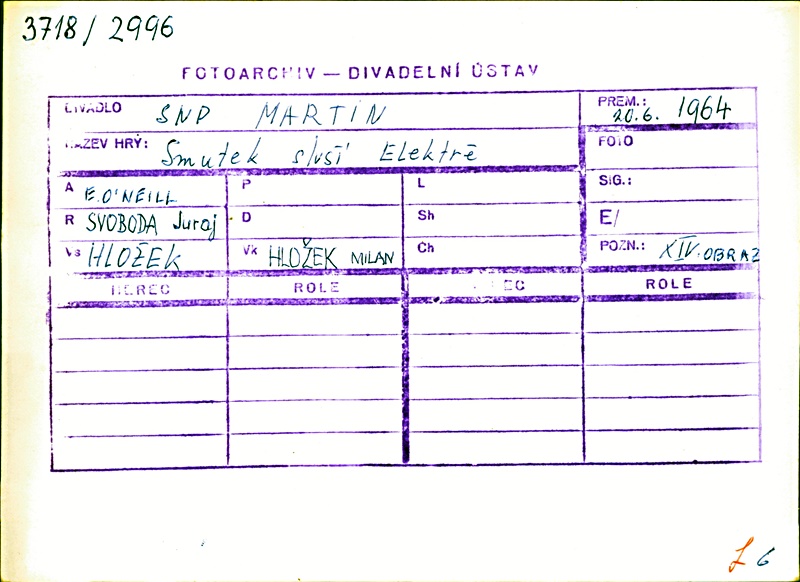 3718/2996
FOTOARCHIV — DIVADELNÍ ÚSTAV
DIVADLO SND MARTIN
PREM.: 20.6. 1964
NÁZEV HRY: Smutek sluší Elektrě
FOTO
A E. O'NEILL P L SIG.:
R SVOBODA Juraj D Sh E/
Vs HLOŽEK Vk HLOŽEK MILAN Ch POZN.: XIV. OBRAZ
HEREC ROLE HEREC ROLE
6